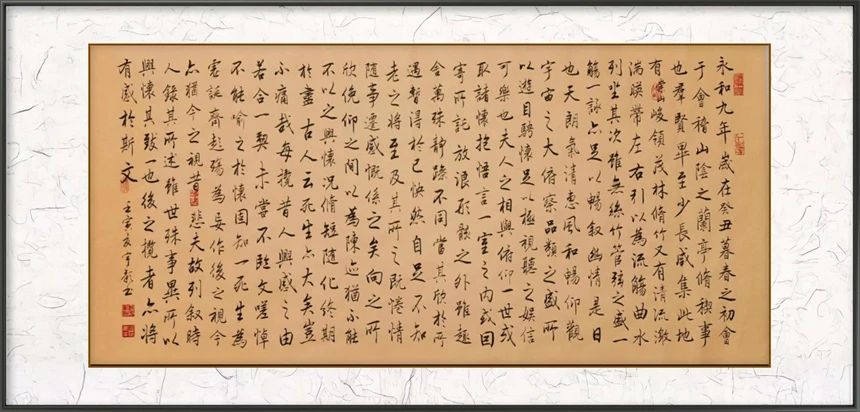 永和九年歲在癸丑暮春之初會
于會稽山陰之蘭亭脩稧事
也羣賢畢至少長咸集此地
有崇山峻領茂林脩竹又有清流激
湍暎帶左右引以為流觴曲水
列坐其次雖無絲竹管弦之盛一
觴一詠亦足以暢叙幽情是日
也天朗氣清惠風和暢仰觀
宇宙之大俯察品類之盛所
以遊目騁懷足以極視聽之娛信
可樂也夫人之相與俯仰一世或
取諸懷抱悟言一室之內或因
寄所託放浪形骸之外雖趣
舍萬殊靜躁不同當其欣於所
遇暫得於己快然自足不知
老之將至及其所之既惓情
隨事遷感慨係之矣向之所
欣俛仰之間以為陳迹猶不能
不以之興懷況脩短隨化終期
於盡古人云死生亦大矣豈
不痛哉每攬昔人興感之由
若合一契未嘗不臨文嗟悼
不能喻之於懷固知一死生為
虛誕齊彭殤為妄作後之視今
亦猶今之視昔悲夫故列叙時
人錄其所述雖世殊事異所以
興懷其致一也後之攬者亦將
有感於斯文
壬寅